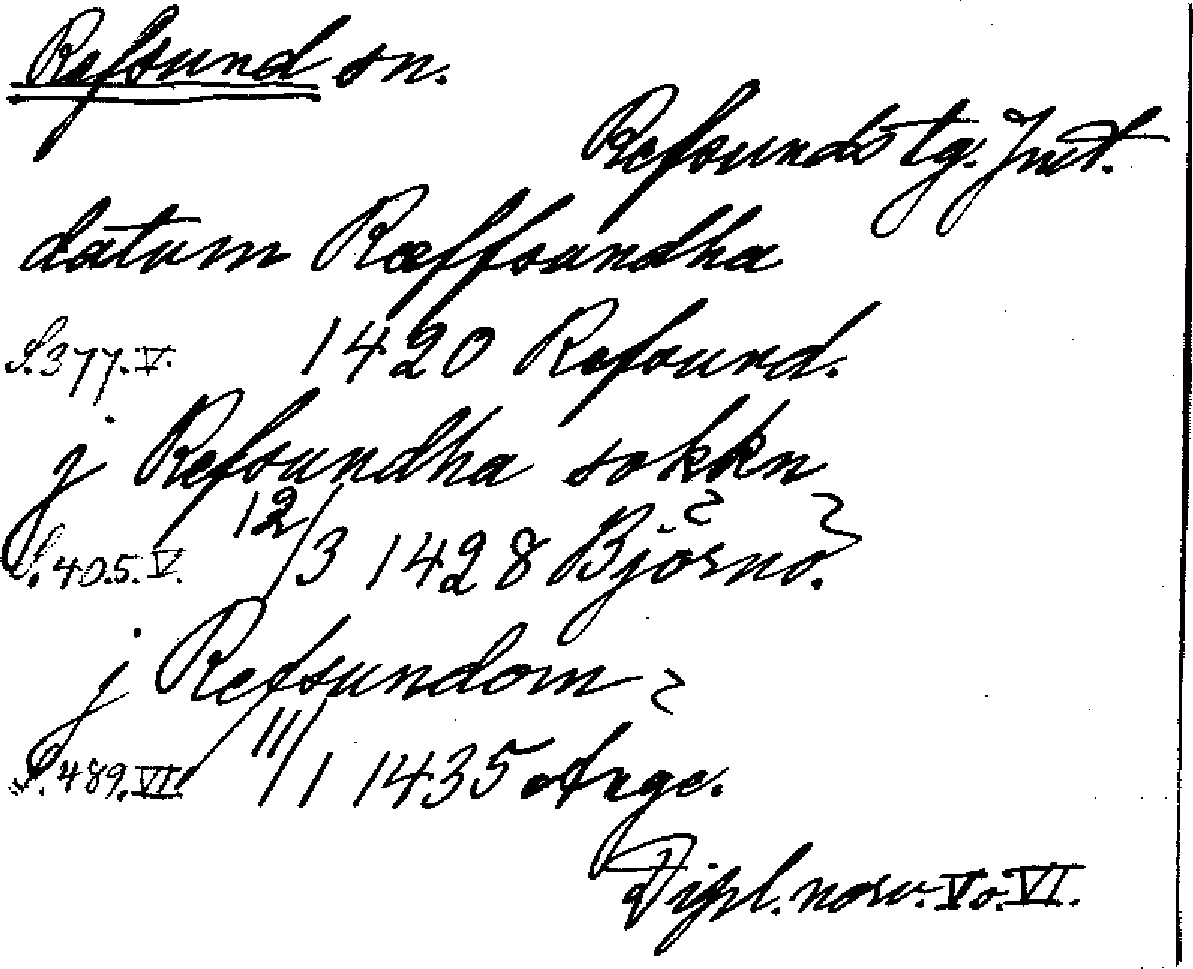 Refsund sn.
Refsunds tg. Jmt.
datum Ræffsundha
S. 377. V. 1420 Refsund.
j Refsundha sokkn
S. 405. V. 12/3 1428 Björnö.
j Refsundom
S. 489. VI. 11/1 1435 Ange.
Dipl. norv. V o. VI.